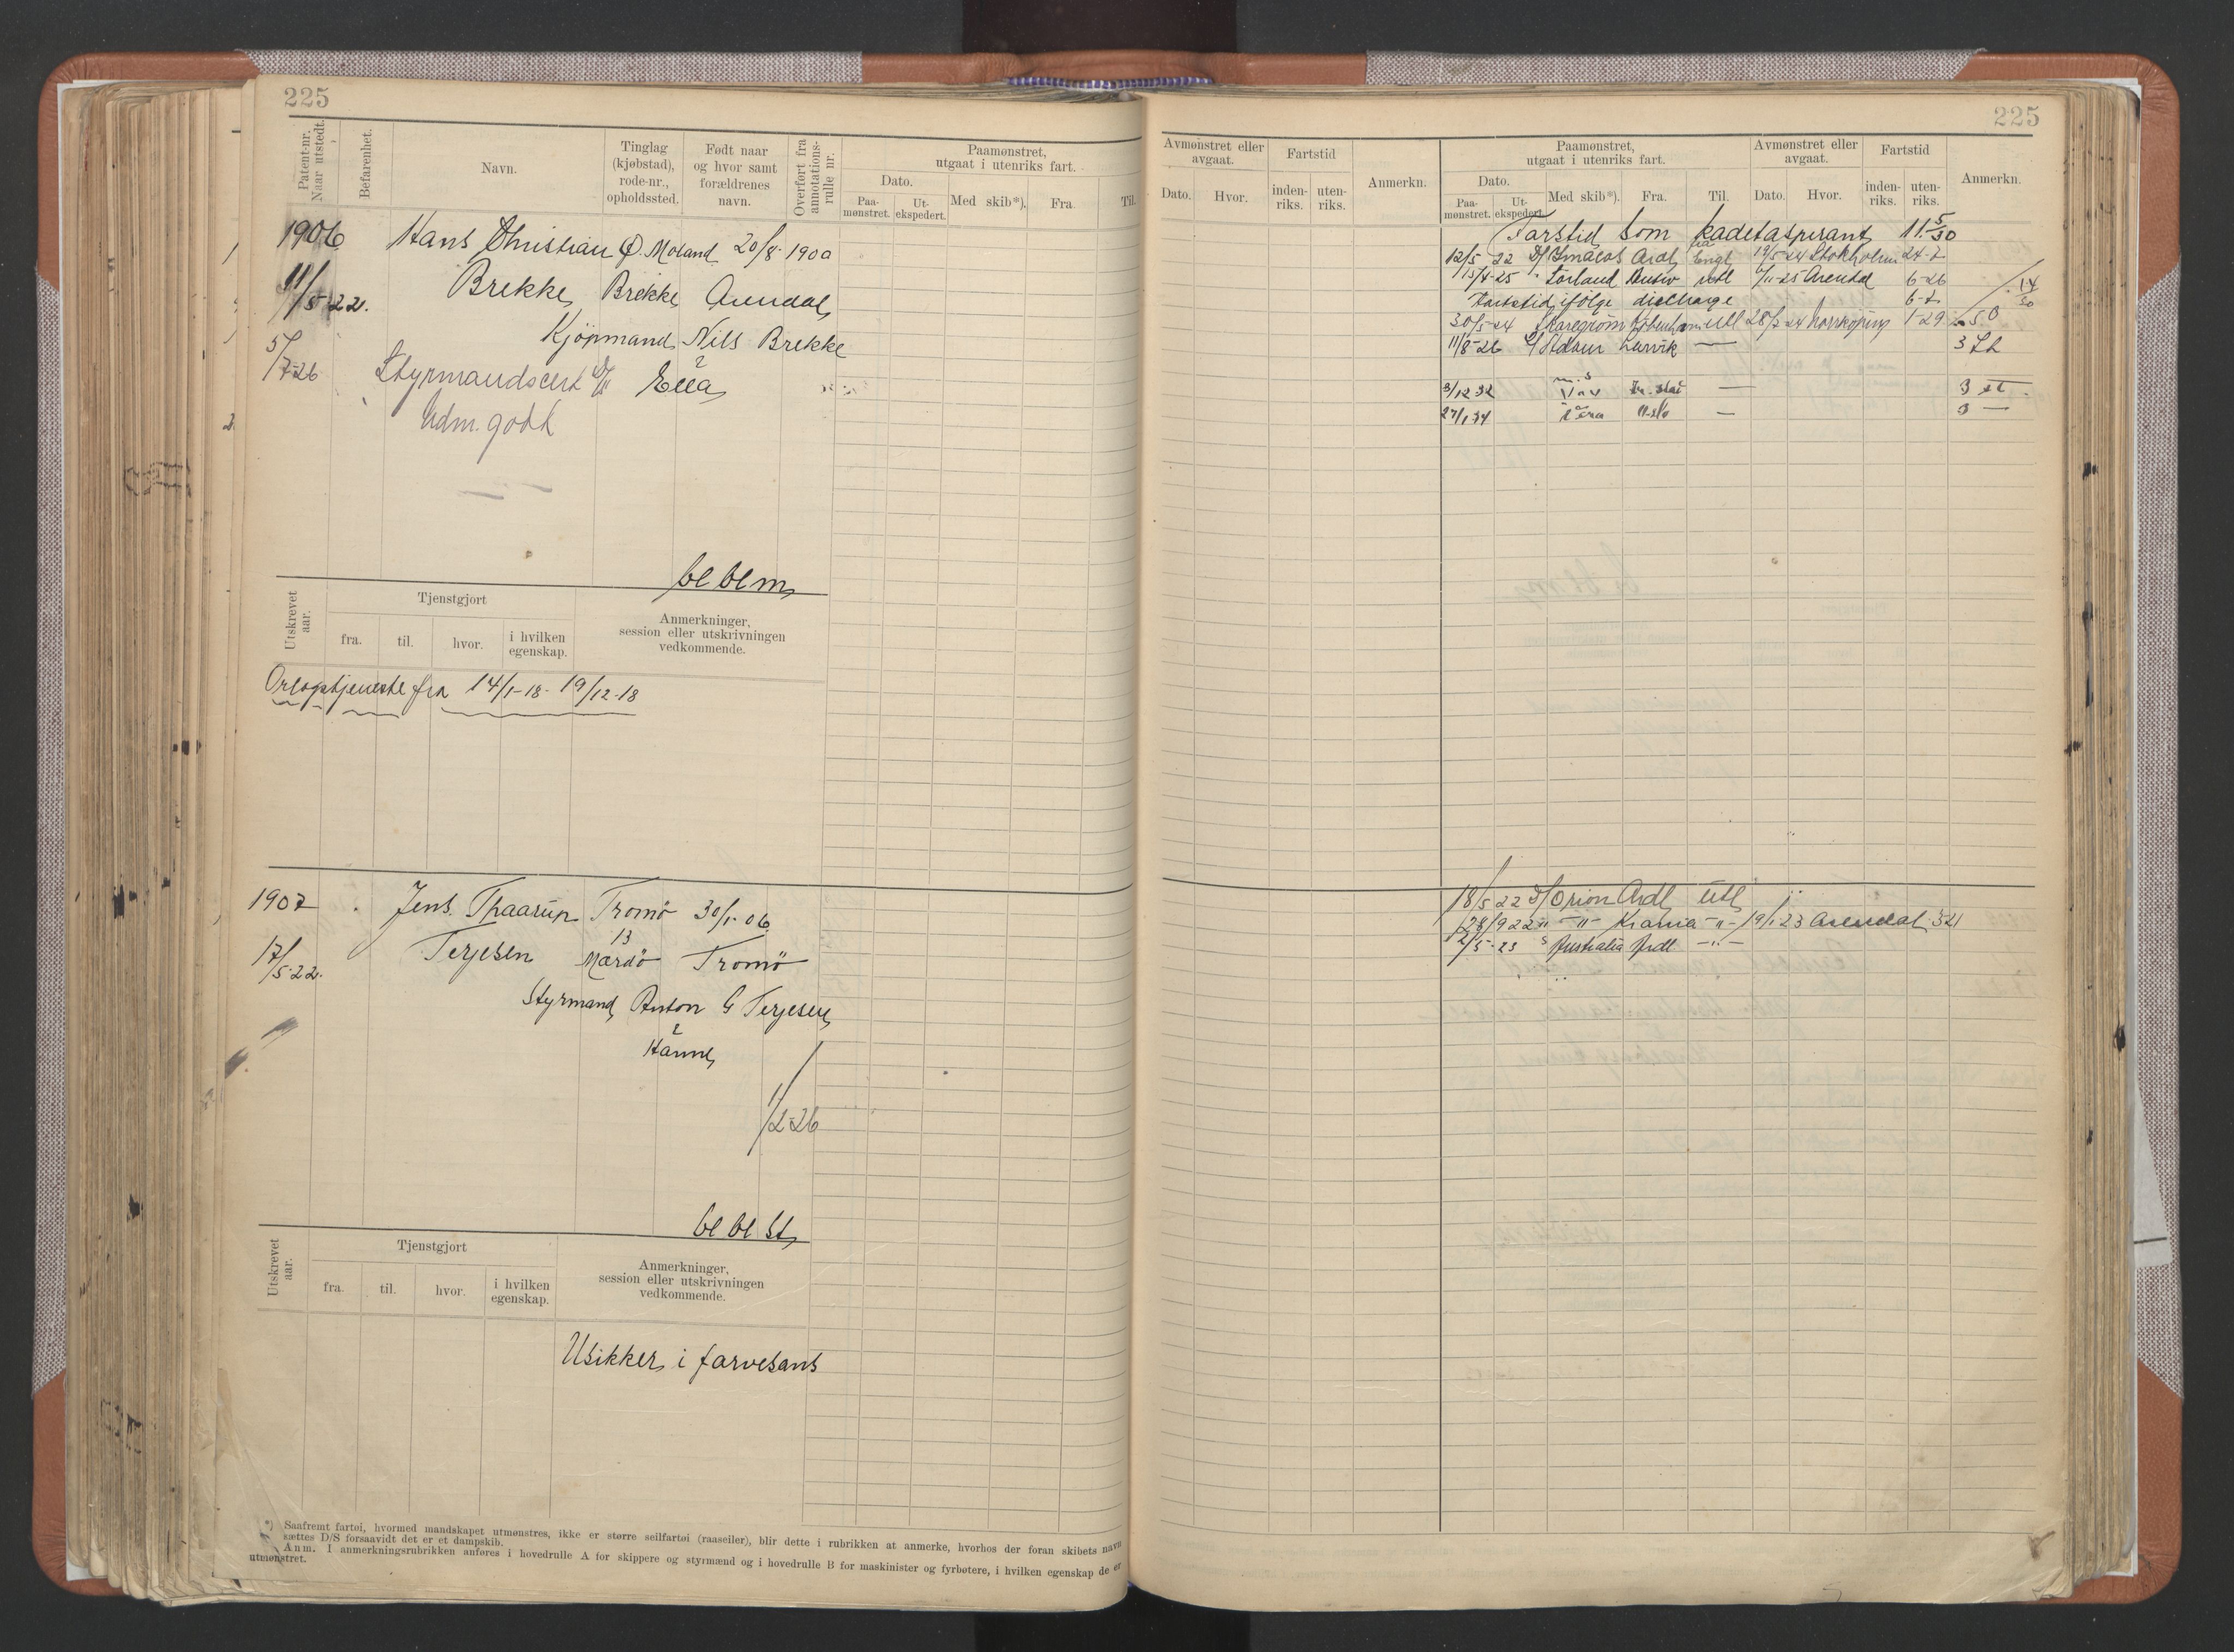 225
Patent-nr. Naar utstedt.
Befarenhet.
Navn.
Tinglag (kjøbstad), rode-nr., opholdssted.
Født naar og hvor samt forældrenes navn.
Overført fra annotations-rulle nr.
Paamønstret, utgaat i utenriks fart.
Dato.
Paa-mønstret.
Ut-ekspedert.
Med skib*).
Fra.
Til.
1906 Hans Christian Ø. Moland 20/8 1900
11/5-22. Brekke Brekke Arendal
Kjöpmand Nils Brekke
5/7-26 Styrmandscert Ella
Adm. godk
bl bl m
Utskrevet aar.
Tjenstgjort
fra.
til.
hvor.
i hvilken egenskap.
Anmerkninger, session eller utskrivningen vedkommende.
Orlogstjeneste fra 14/1-18-19/12-18
1907 Jens Thaarup Tromö 30/1-06
17/5-22. Terjesen 13 Mærdö Tromö
Styrmand Anton G Terjesen
Hanne
1/2-26
bl bl St
Utskrevet aar.
Tjenstgjort
fra.
til.
hvor.
i hvilken egenskap.
Anmerkninger, session eller utskrivningen vedkommende.
Usikker i farvesans
*) Saafremt fartøi, hvormed mandskapet utmønstres, ikke er større seilfartøi (raaseiler), blir dette i rubrikken at anmerke, hvorhos der foran skibets navn
sættes D/S forsaavidt det er et dampskib.
Anm. I anmerkningsrubrikken anføres i hovedrulle A for skippere og styrmænd og i hovedrulle B for maskinister og fyrbøtere, i hvilken egenskap de er
utmønstret.
225
Avmønstret eller avgaat.
Fartstid
Anmerkn.
Paamønstret, utgaat i utenriks fart.
Avmønstret eller avgaat.
Fartstid
Anmerkn.
Dato.
Hvor.
inden-riks.
uten-riks.
Dato.
Paa-mønstret.
Ut-ekspedert.
Med skib*).
Fra.
Til.
Dato.
Hvor.
inden-riks.
uten-riks.
Farstid som kadetaspirant 11 5/30
12/5 22 Ardl Engl 19/5-24 Stokholm 24-7
15/4-25 utl 6/11-25 Arendal 6-26
Fartstid ifölge discharge 6-7
30/5-24 utl 28/7 24 Norrköping 1-29
11/8-26 Larvik — 3 St
3/12 32 — 3 st
27/1 34 — 3 —
18/5 22 D/S Orion Ardl Utl
28/9 22 " -"- Krania -"- 19/1 23 Arendal
2/5-23 Australia Ardl -"-